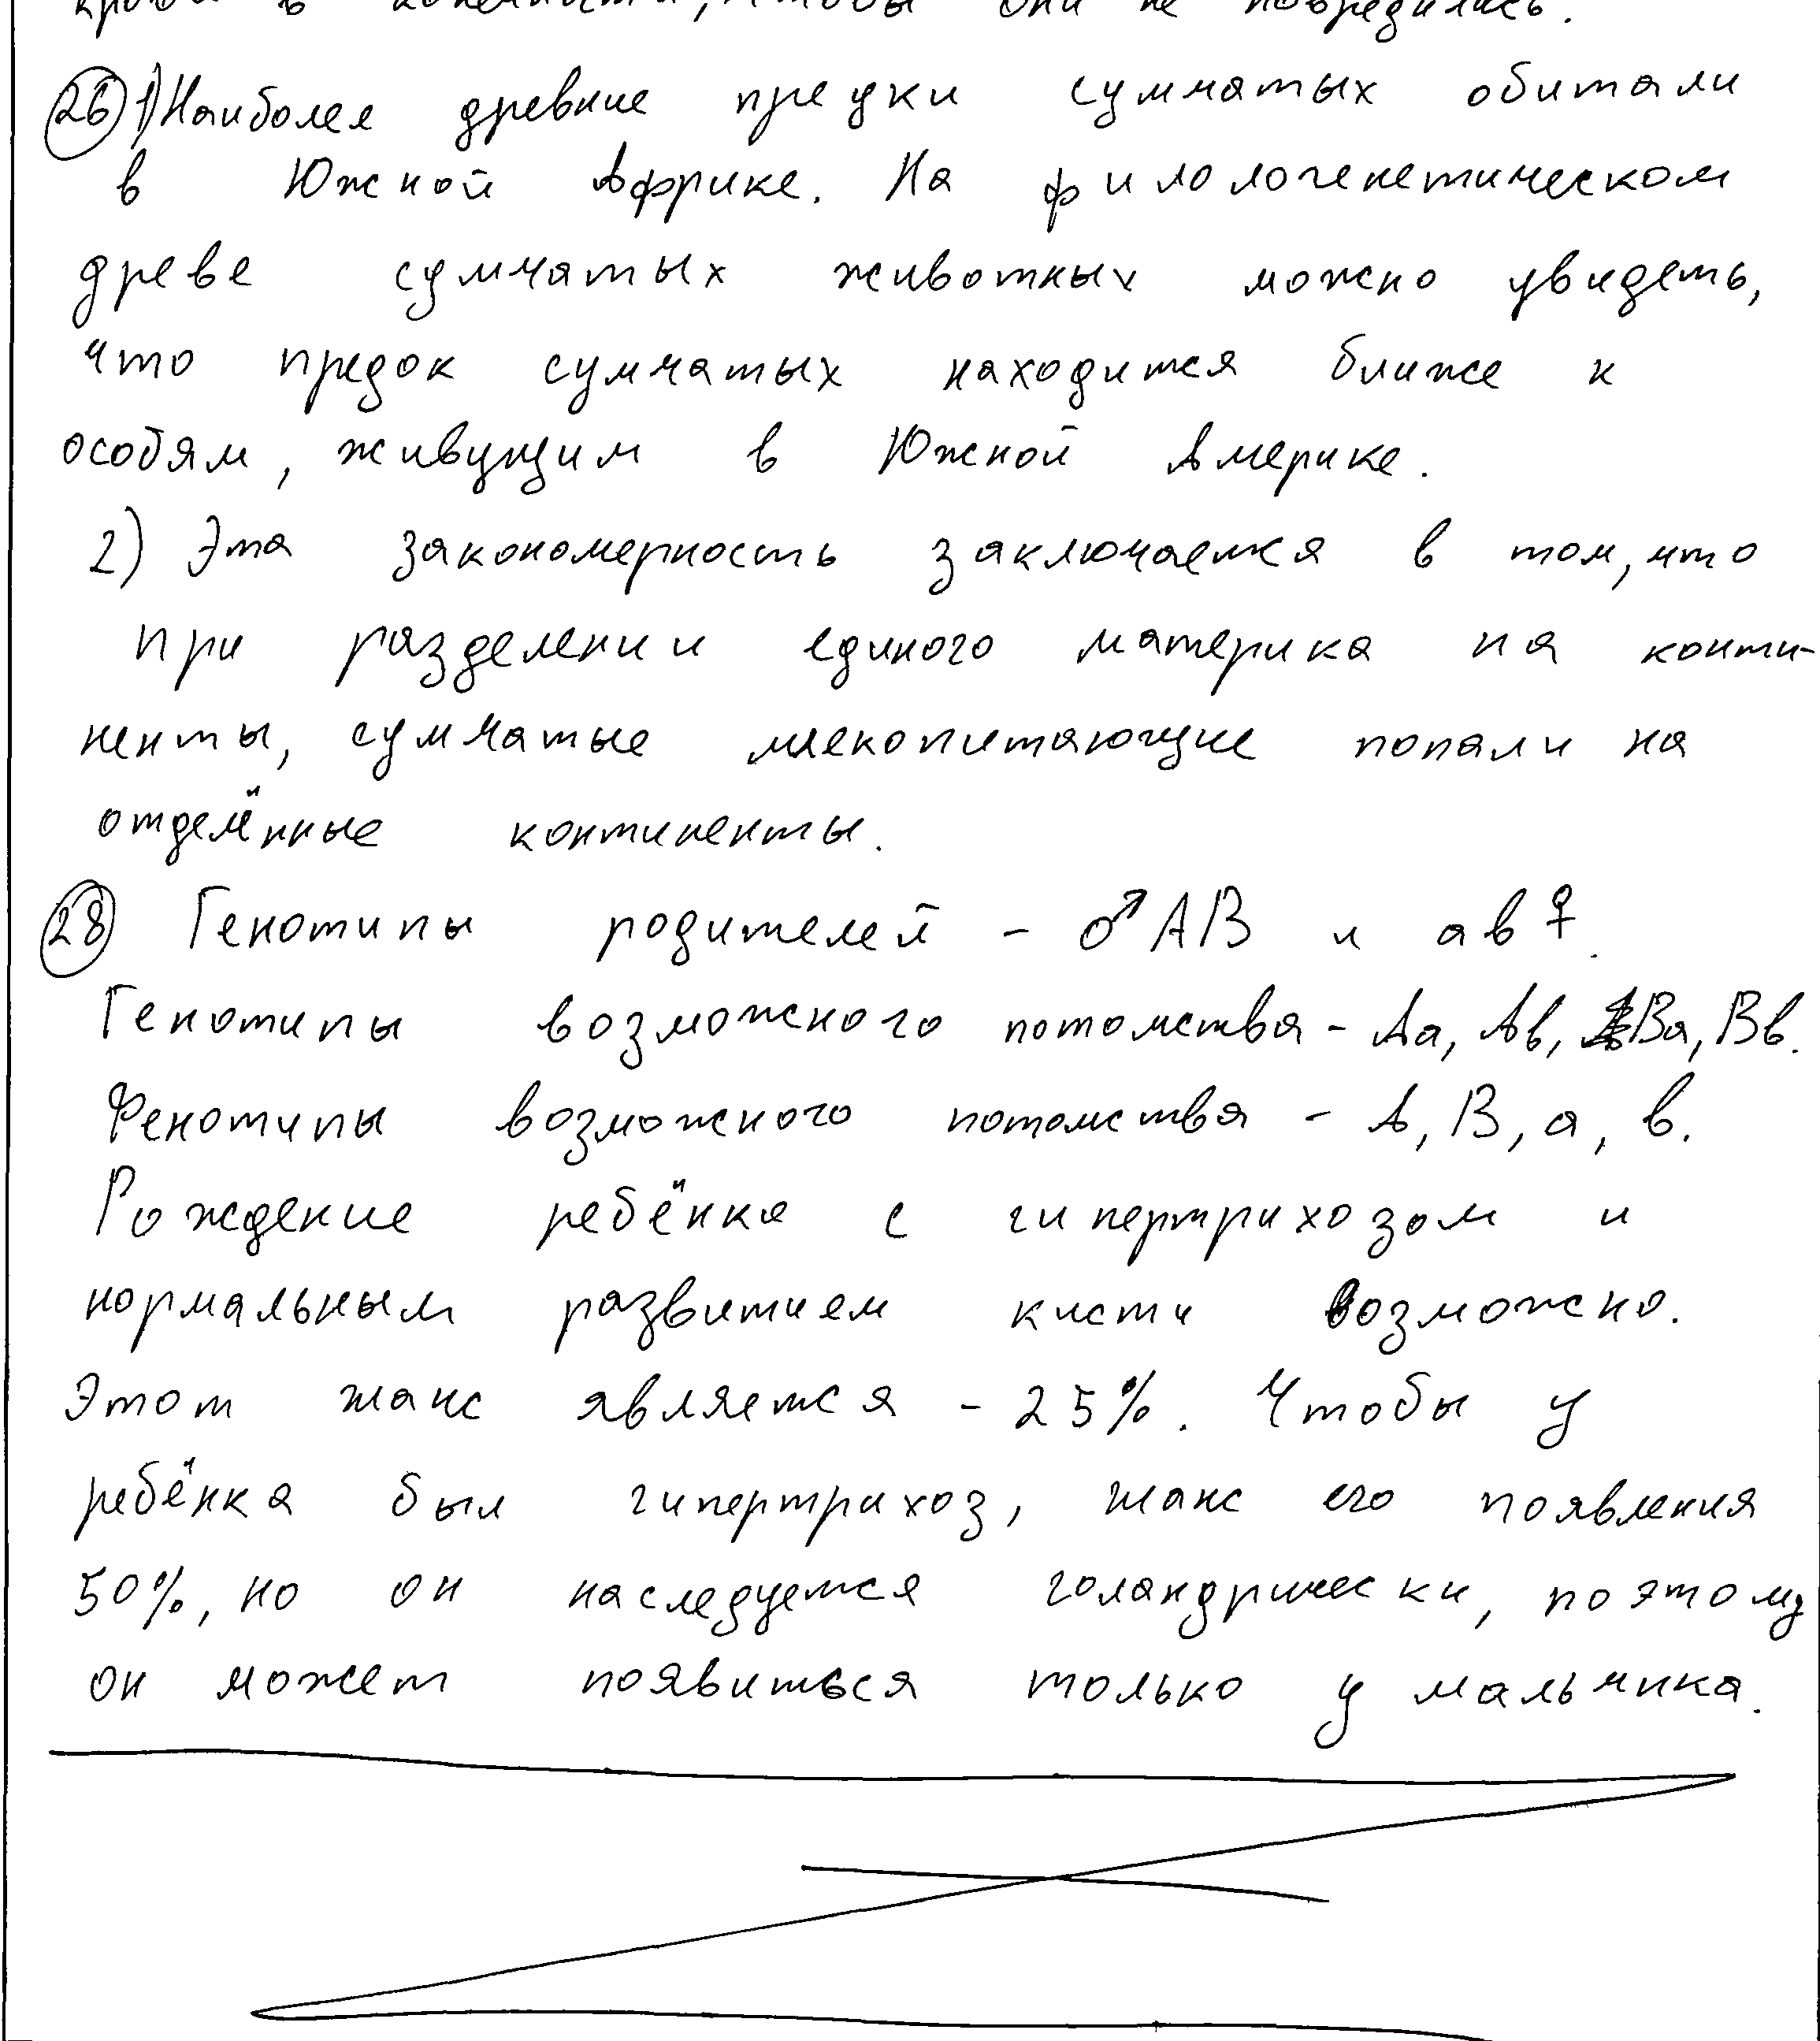 крови в конечности, чтобы они не повредились.
26 1) Наиболее древние предки сумчатых обитали
в Южной Африке. На филологенетическом
древе сумчатых животных можно увидеть,
что предок сумчатых находится ближе к
особям, живущим в Южной Америке.
2) Эта закономерность заключается в том, что
при разделении единого материка на конти-
ненты, сумчатые млекопитающие попали на
отделённые континенты.
28 Генотипы родителей - ♂АВ и ав♀.
Генотипы возможного потомства - Аа, Ав, Ва, Вв.
Фенотипы возможного потомства - А, В, а, в.
Рождение ребёнка с гипертрихозом и
нормальным развитием кисти возможно.
Этот шанс является - 25%. Чтобы у
ребёнка был гипертрихоз, шанс его появления
50%, но он наследуется голандрически, поэтому
он может появиться только у мальчика.